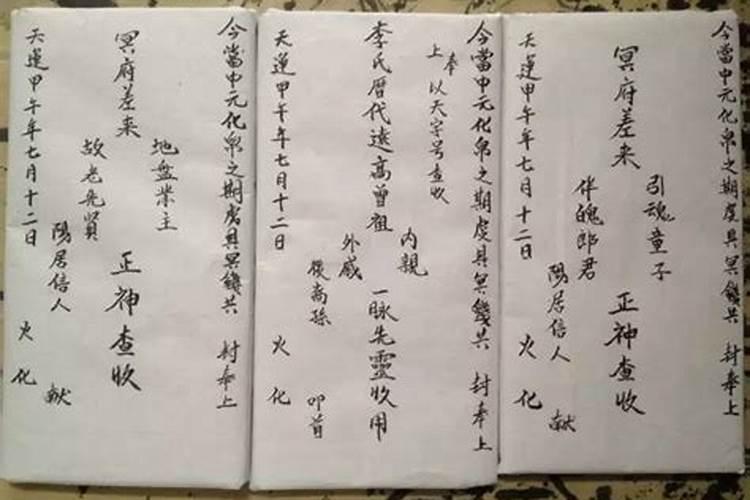 今當中元化帛之期虔具冥錢共 封奉上
冥府差来
引魂童子
伴魄郎君
正神查收
陽居信人 献
天運甲午年七月十二日 火化
今當中元化帛之期虔具冥錢共 封奉上
上奉 以天字号查收
李氏曆代遠高曾祖
内親
外戚
一脉先靈收用
後裔孫 叩首
天運甲午年七月十二日 火化
今當中元化帛之期虔具冥錢共 封奉上
冥府差来
地盤業主
故老先賢
正神查收
陽居信人 献
天運甲午年七月十二日 火化